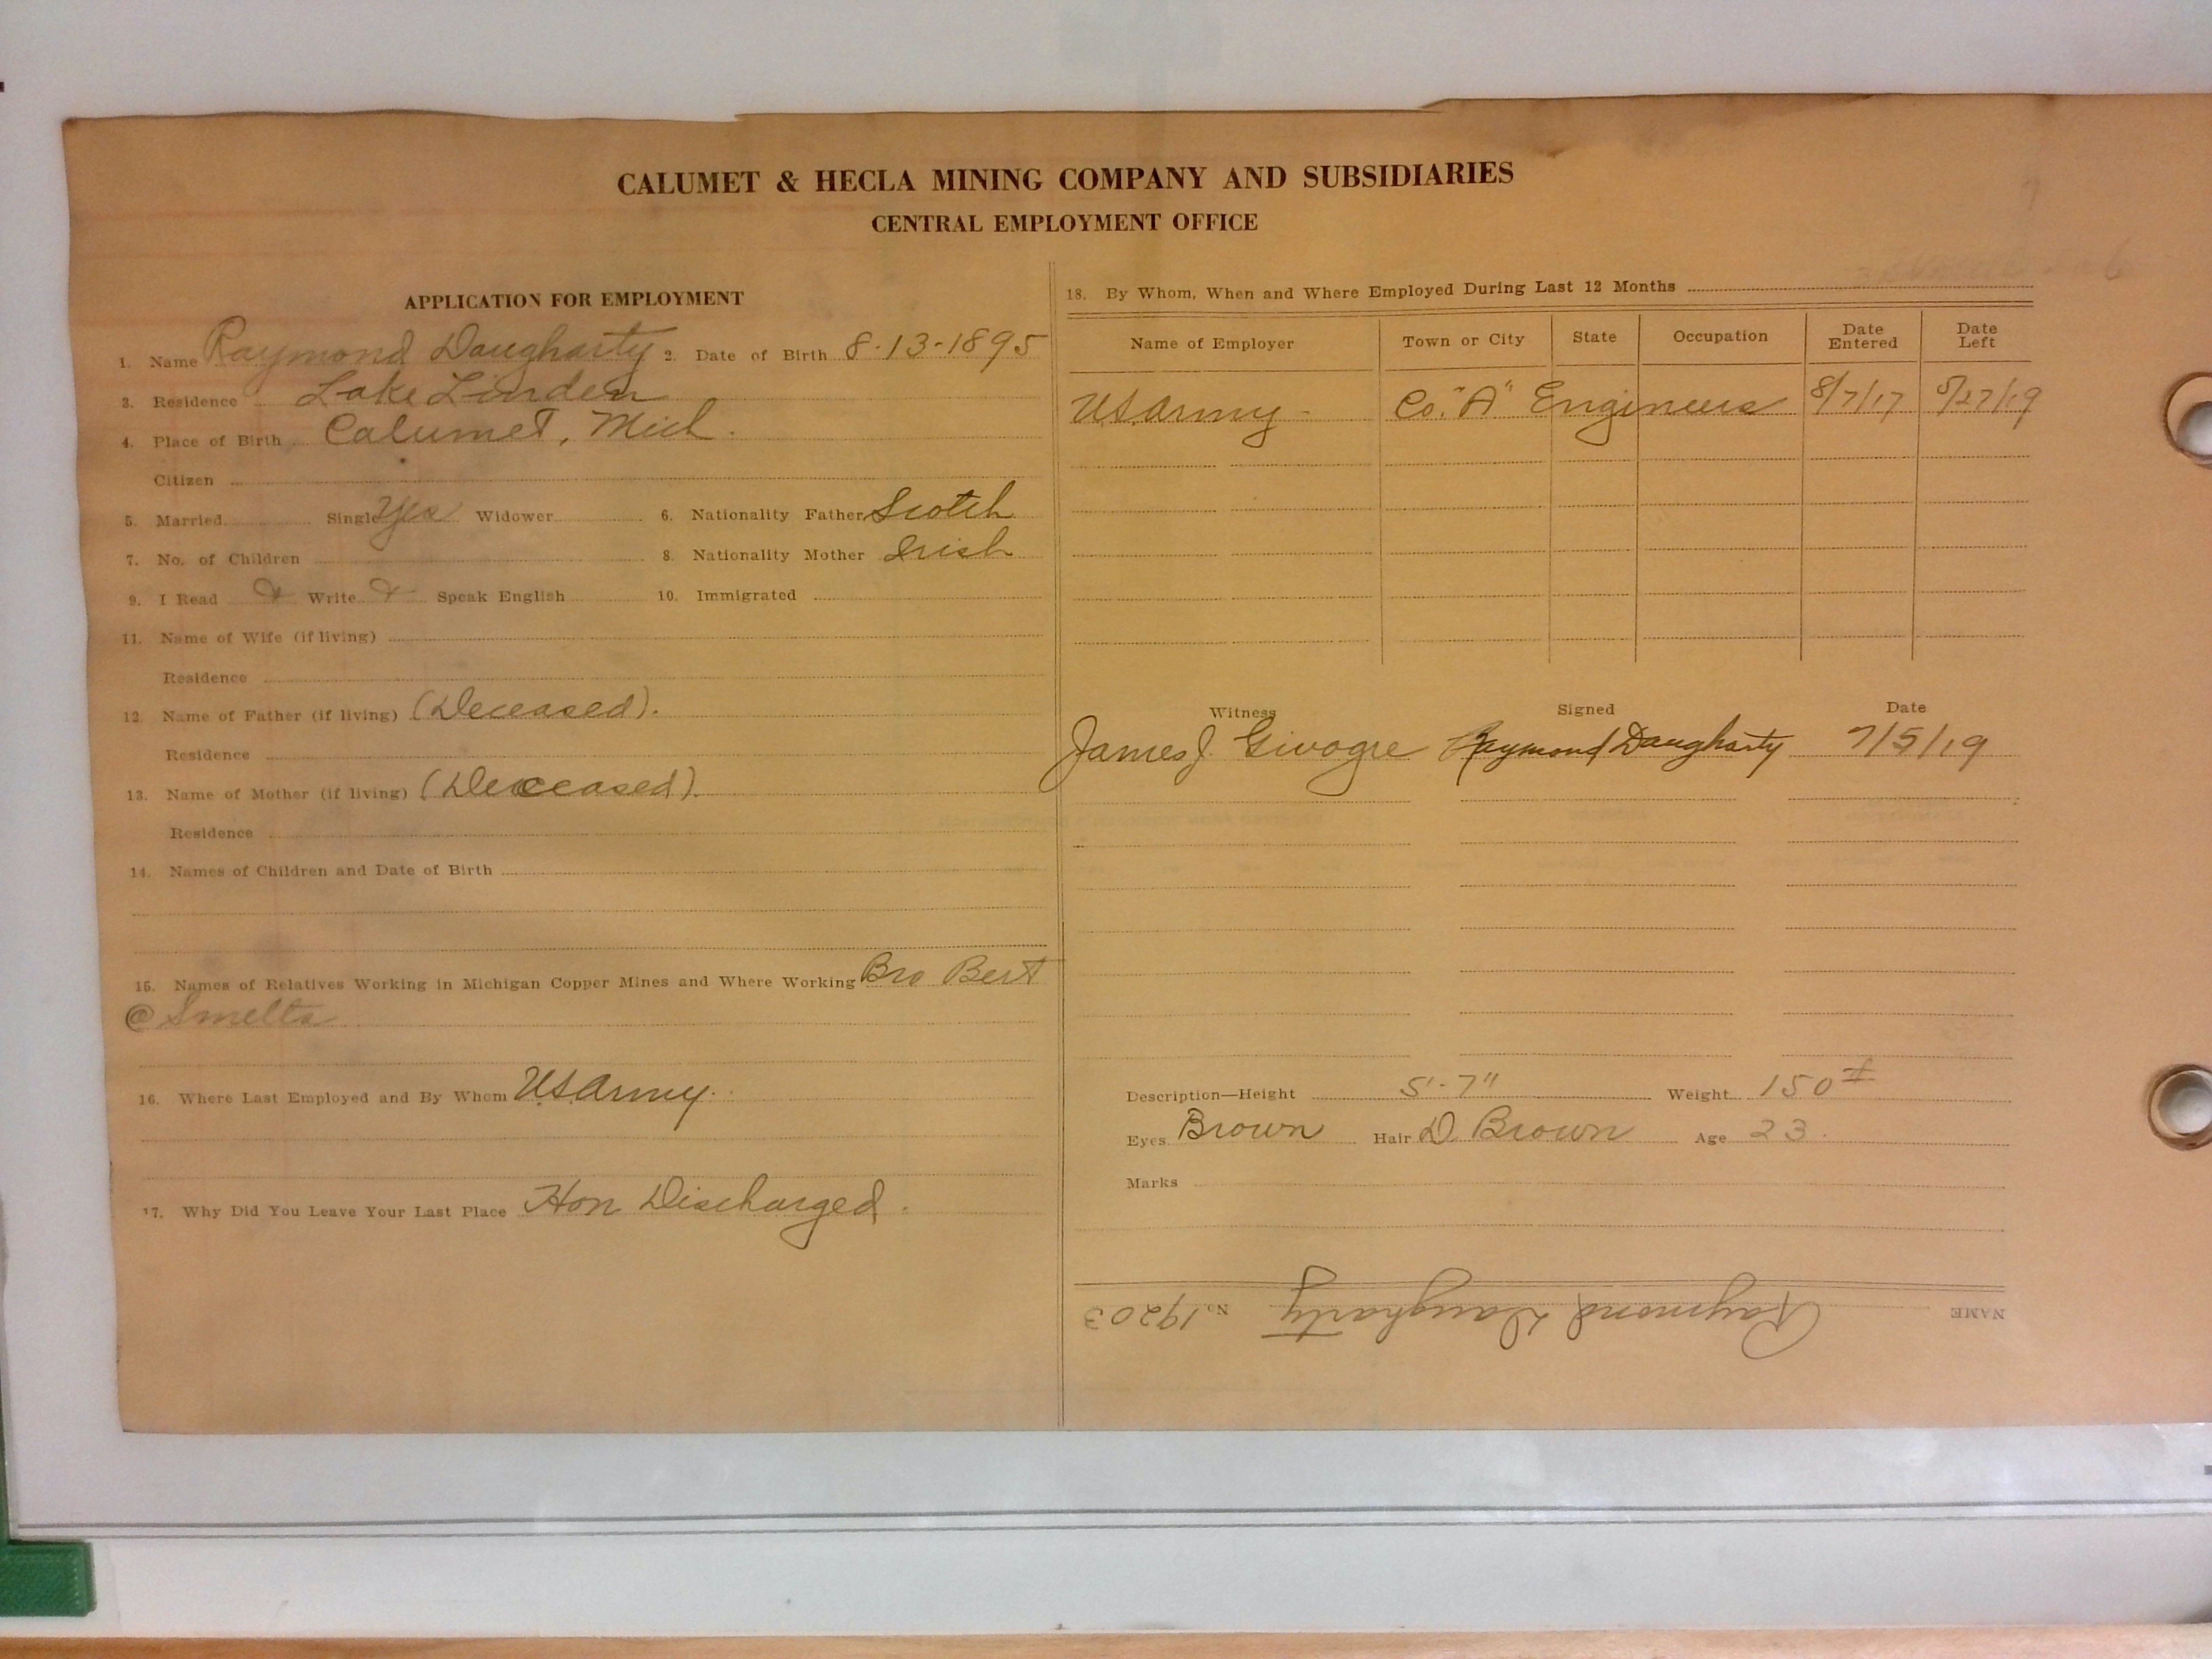 CALUMET & HECLA MINING COMPANY AND SUBSIDIARIES
CENTRAL EMPLOYMENT OFFICE
APPLICATION FOR EMPLOYMENT
1. Name Raymond Daugharty 2. Date of Birth 8-13-1895
3. Residence Lake Linden
4. Place of Birth Calumet, Mich.
Citizen
5. Married Single Yes Widower 6. Nationality Father Scotch
7. No. of Children 8. Nationality Mother Irish
9. I Read Write Speak English 10. Immigrated
11. Name of Wife (if living)
Residence
12. Name of Father (if living) (Deceased).
Residence
13. Name of Mother (if living) (Deceased).
Residence
14. Names of Children and Date of Birth
15. Names of Relatives Working in Michigan Copper Mines and Where Working Bro Bert
@ Smelts
16. Where Last Employed and By Whom U.S. Army.
17. Why Did You Leave Your Last Place Hon Discharged.
18. By Whom, When and Where Employed During Last 12 Months
Name of Employer Town or City State Occupation Date Entered Date Left
U.S. Army - Co. "A" Engineers 8/7/17 5/27/19
Witness Signed Date
James J. Givogre Raymond Daugharty 7/5/19
Description—Height 5'-7" Weight 150#
Eyes Brown Hair D. Brown Age 23.
Marks
NAME Raymond Daugharty No. 19203